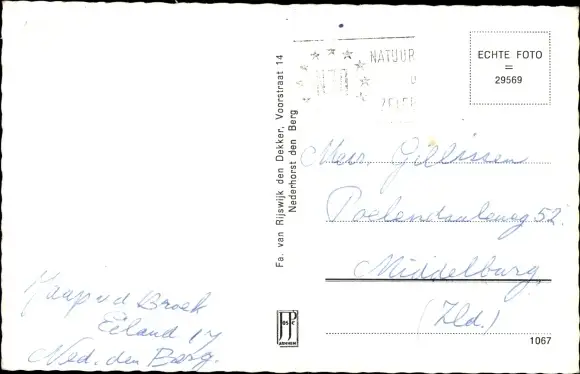 NATUUR
ECHTE FOTO
=
29569
Fa. van Rijswijk den Dekker, Voorstraat 14
Nederhorst den Berg
Mevr. Gillissen
Poelendaeleweg 52.
Middelburg.
(Zld.)
Jaap v d Broek
Eiland 17
Ned. den Berg.
JP
OS C
ARNHEM
1067